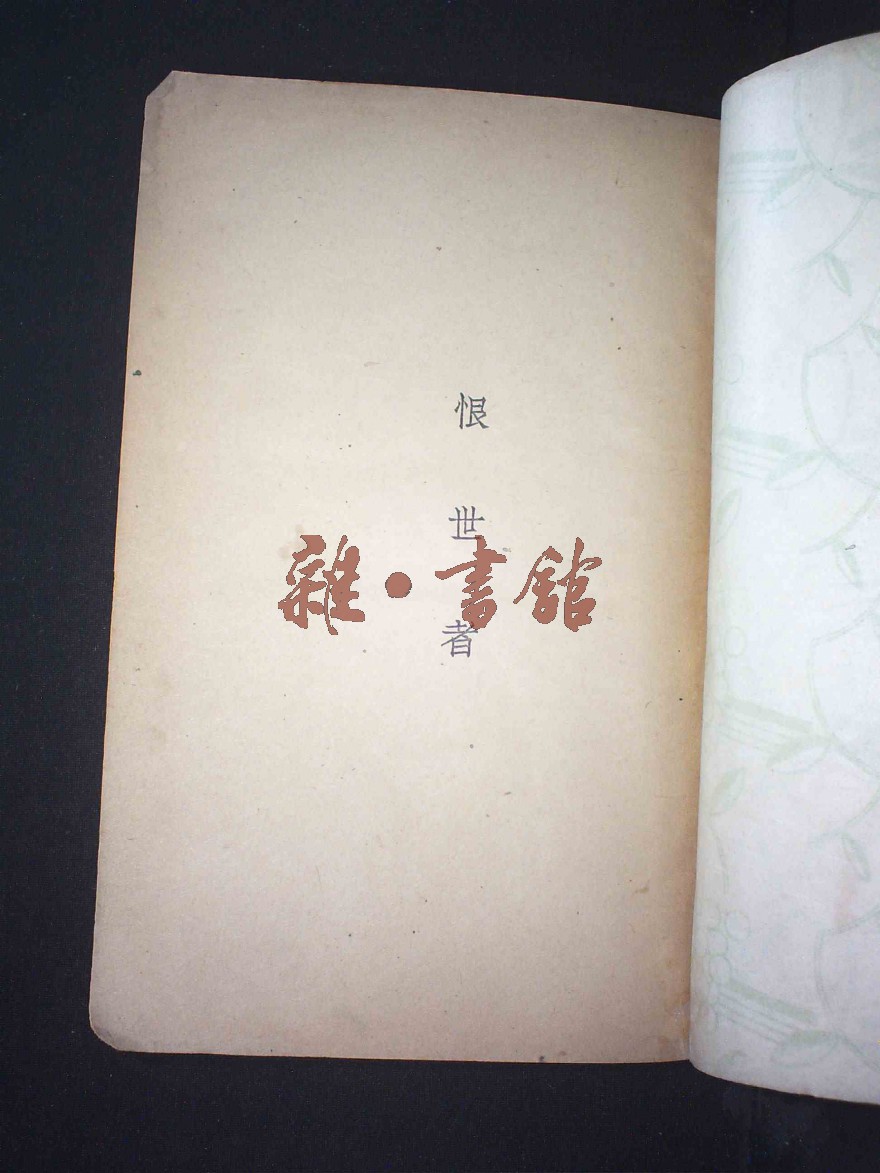 恨世者
雜·書館